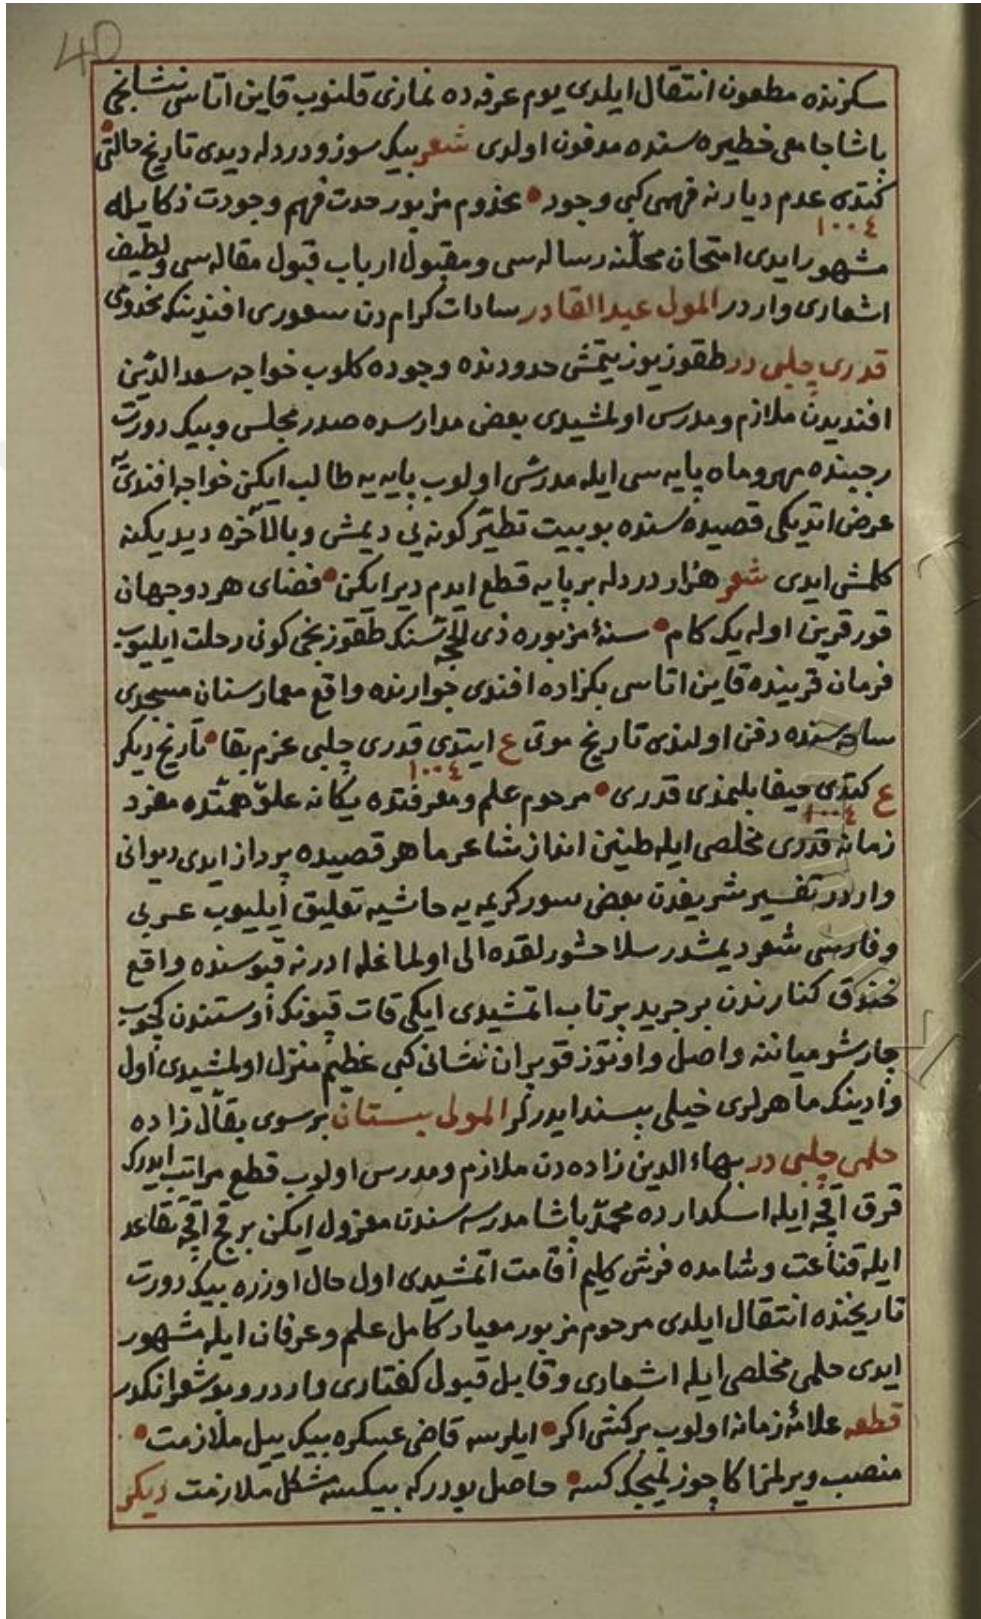 40
سكزنده مطعون انتقال ايلدى يوم عرفه ده نمازى قلنوب قاين اتاسى نشانجى
پاشا جامعى خطيره سنده مدفون اولدى شعر بيك سوز و درد له ديدى تاريخ حالتى
كتدى عدم ديارنه فهمى كبى وجود • مخدوم مزبور حدت فهم وجودت ذكايله
١٠٠٤
مشهور ايدى امتحان محلنه رساله سى و مقبول ارباب قبول مقاله سى و لطيف
اشعارى واردر المولى عبد القادر سادات كرام دن سعورى افندينك مخدومى
قدرى چلبى در طقوز يوز يتمشى حدودنده وجوده كلوب خواجه سعد الدين
افنديدن ملازم و مدرس اولمشيدى بعض مدارسده صدر مجلس و بيك دورت
رجبنده مهر و ماه پايه سى ايله مدرس اولوب پايه يه طالب ايكن خواجه افندى يه
عرض اتديكى قصيده سنده بو بيت تطير كونه يى ديمش و بالاخره ديديكنه
كلمشى ايدى شعر هزار درد له بر پايه قطع ايدم ديرايكن • فضاى هر دو جهان
قورقرين اوله يك كام • سنهٔ مزبوره ذى الحجه سنك طقوزنجى كونى رحلت ايليوب
فرمان قربنده قاين اتاسى بكزاده افندى جوارنده واقع معمارستان مسجدى
ساحه سنده دفن اولندى تاريخ موتى ع ايتدى قدرى چلبى عزم بقا • تاريخ ديكر
١٠٠٤
ع كتدى حيفا بلنمدى قدرى • مرحوم علم و معرفتده يكانه علو همتده مفرد
١٠٠٤
زمانه قدرى مخلصى ايله طنين انداز شاعر ماهر قصيده پرداز ايدى ديوانى
واردر تفسير شريفدن بعض سور كريمه يه حاشيه تعليق ايليوب عربى
وفارسى شعر ديمشدر سلاحشورلقده الى اولماغله ادرنه قپوسنده واقع
خندق كنارندن بر جريد پرتاب اتمشيدى ايكى قات قپونك اوستندن كچوب
چارشو مياننه واصل و اوتوز قوپران نشانى كبى عظيم منزل اولمشيدى اول
وادينك ماهرلرى خيلى پسند ايدرلر المولى بستان برسوى بقال زاده
حلمى چلبى در بهاء الدين زاده دن ملازم و مدرس اولوب قطع مراتب ايدرك
قرق اقچه ايله اسكدارده محمد پاشا مدرسه سندن معزول ايكن بر قچ اقچه تقاعد
ايله قناعت و شامده فرش كليم اقامت اتمشيدى اول حال اوزره بيك دورت
تاريخنده انتقال ايلدى مرحوم مزبور معيار كامل علم و عرفان ايله مشهور
ايدى حلمى مخلصى ايله اشعارى و قابل قبول كفتارى واردر و بو شعر انكدر
قطعه علامهٔ زمانه اولوب بر كشى اكر • ايلرسه قاضى عسكره بيك ييل ملازمت •
منصب ويرلمز اكا چوزلمينجك كسه • حاصل بودر كه بيكسه مشكل ملازمت ديكر